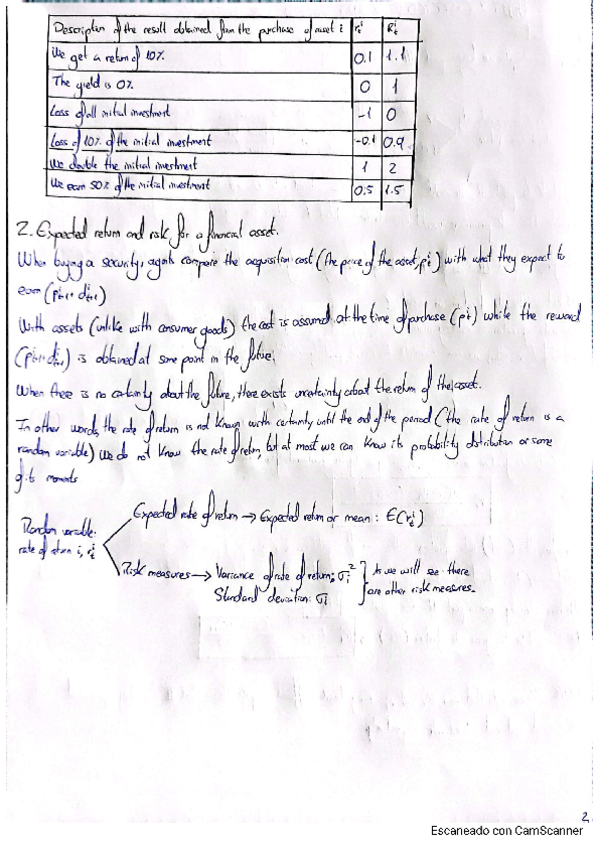 Description of the result obtained from the purchase of asset i r_t^i R_t^i
We get a return of 10% 0.1 1.1
The yield is 0% 0 1
Loss of all initial investment -1 0
Loss of 10% of the initial investment -0.1 0.9
We double the initial investment 1 2
We earn 50% of the initial investment 0.5 1.5
2. Expected return and risk for a financial asset.
When buying a security, agents compare the acquisition cost (the price of the asset, p_t^i) with what they expect to
earn (p_{t+1}^i + d_{t+1}^i)
With assets (unlike with consumer goods) the cost is assumed at the time of purchase (p_t^i) while the reward
(p_{t+1}^i + d_{t+1}^i) is obtained at some point in the future.
When there is no certainty about the future, there exists uncertainty about the return of the asset.
In other words, the rate of return is not known with certainty until the end of the period (the rate of return is a
random variable) We do not know the rate of return, but at most we can know its probability distribution or some
of its moments
Expected rate of return → Expected return or mean: E(r_t^i)
Random variable:
rate of return i, r_t^i
Risk measures → Variance of rate of return: σ_i^2 } As we will see there
Standard deviation: σ_i are other risk measures.
2
Escaneado con CamScanner